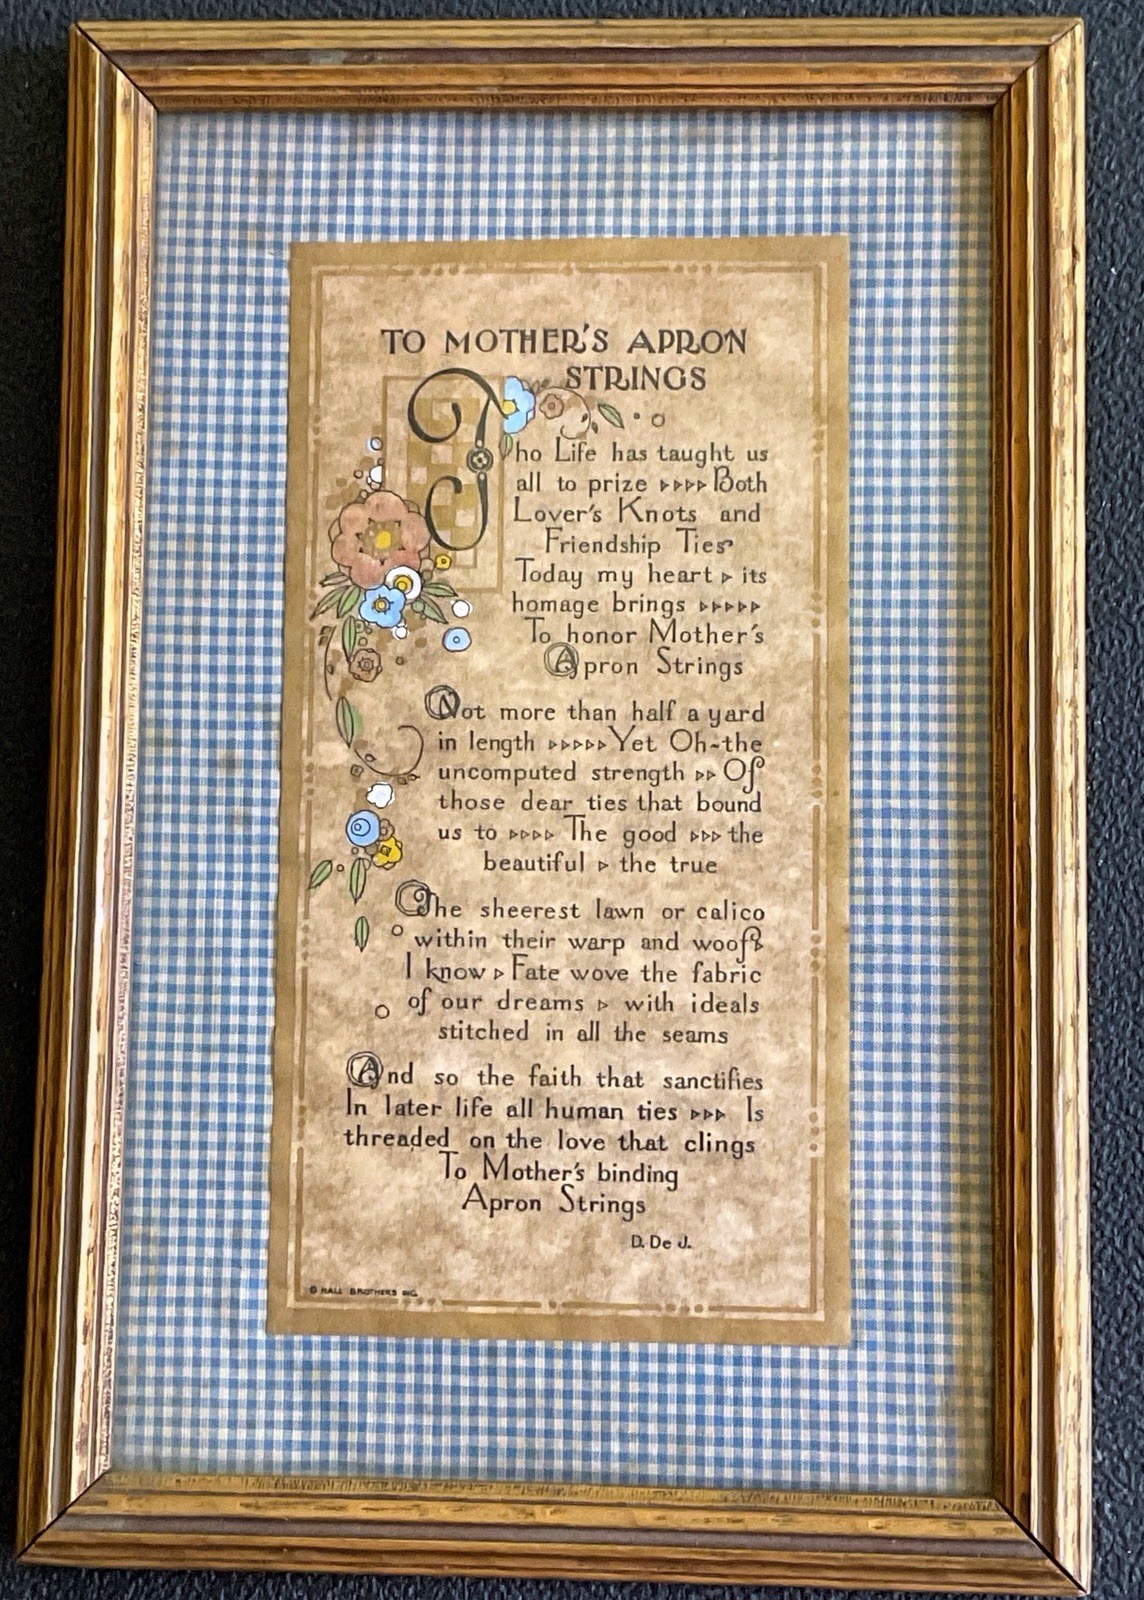 TO MOTHER'S APRON
STRINGS
Tho Life has taught us
all to prize ▹▹▹▹ Both
Lover's Knots and
Friendship Ties
Today my heart ▹ its
homage brings ▹▹▹▹▹
To honor Mother's
Apron Strings
Not more than half a yard
in length ▹▹▹▹▹ Yet Oh-the
uncomputed strength ▹▹ Of
those dear ties that bound
us to ▹▹▹▹ The good ▹▹▹ the
beautiful ▹ the true
The sheerest lawn or calico
within their warp and woof?
I know ▹ Fate wove the fabric
of our dreams ▹ with ideals
stitched in all the seams
And so the faith that sanctifies
In later life all human ties ▹▹▹ Is
threaded on the love that clings
To Mother's binding
Apron Strings
D. De J.
© HALL BROTHERS INC.